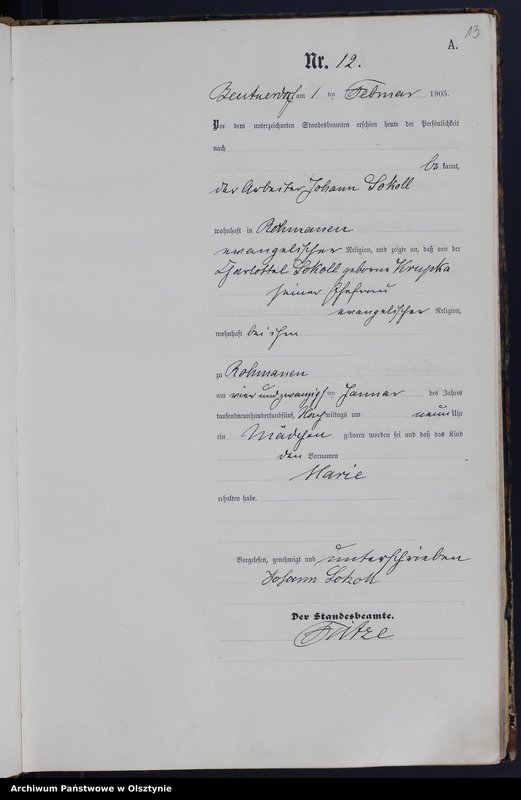 13
A.
Nr. 12.
Beutnerdorf am 1 ten Februar 1905.
Vor dem unterzeichneten Standesbeamten erschien heute der Persönlichkeit
nach
be kannt,
der Arbeiter Johann Sokoll
wohnhaft in Rohmanen
evangelischer Religion, und zeigte an, daß von der
Charlotte Sokoll geborne Krupka
seiner Ehefrau
evangelischer Religion,
wohnhaft bei ihm
zu Rohmanen
am vier und zwanzigsten Januar des Jahres
tausendneunhundertundfünf, Nachmittags um neun Uhr
ein Mädchen geboren worden sei und daß das Kind
den Vornamen
Marie
erhalten habe.
Vorgelesen, genehmigt und unterschrieben
Johann Sokoll
Der Standesbeamte.
Archiwum Państwowe w Olsztynie